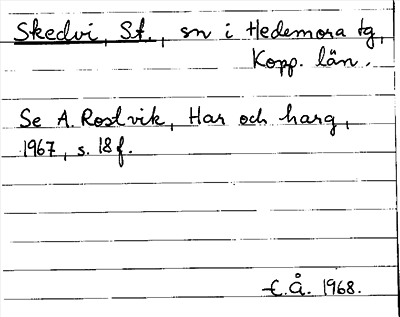 Skedvi, St., sn i Hedemora tg,
Kopp. län.
Se A. Rostvik, Har och harg,
1967, s. 18 f.
E.Å. 1968.